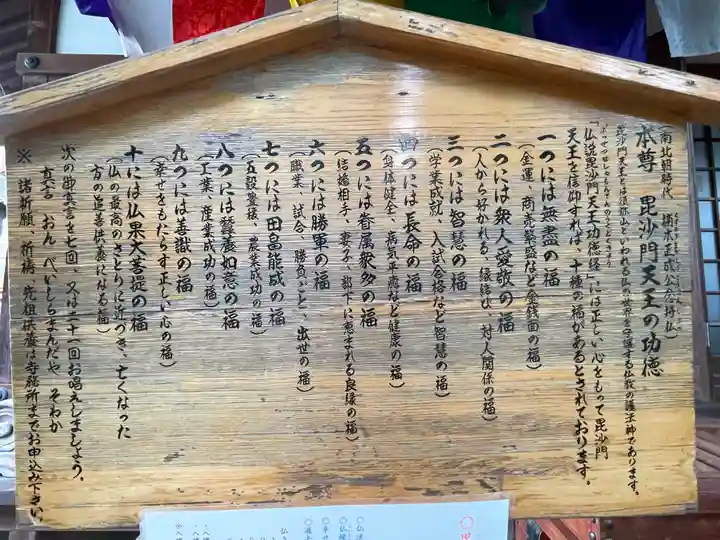 (南北朝時代 楠木正成公念持仏)
本尊 毘沙門天王の功徳
毘沙門天王とは須弥山といわれる仏の世界を守護する仏教の護法神であります。
「仏説毘沙門天王功徳経」には正しい心をもって毘沙門
天王を信仰すれば、十種の福があるとされております。
一つには無盡の福
(金運、商売繁盛など金銭面の福)
二つには衆人愛敬の福
(人から好かれる、縁結び、対人関係の福)
三つには智慧の福
(学業成就、入試合格など智慧の福)
四つには長命の福
(身体健全、病気平癒など健康の福)
五つには眷属衆多の福
(結婚相手、妻子、部下に恵まれる良縁の福)
六つには勝軍の福
(職業、試合、勝負ごと、出世の福)
七つには田畠能成の福
(五穀豊穣、農業成功の福)
八つには蚕養如意の福
(工業、産業成功の福)
九つには善識の福
(幸せをもたらす正しい心の福)
十には仏果大菩提の福
(仏の最高のさとりに近づき、亡くなった
方の追善供養になる福)
次の御真言を七回、又は二十一回お唱えしましょう。
真言 おん べいしらまんだや そわか
※ 諸祈願、祈祷、先祖供養は寺務所までお申込み下さい。